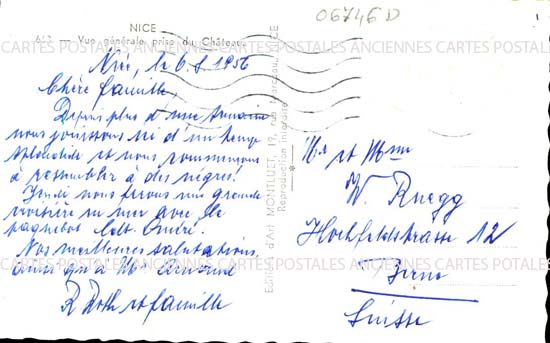 06746D
NICE
Vue générale prise du Château
CARTES POSTALES ANCIENNES CARTES POSTALES ANCIENNES CARTES POSTALES
Nice, le 6.8.1956
Chère famille,
Depuis plus d'une semaine
nous jouissons ici d'un temps
splendide et nous commençons
à ressembler à des nègres!
Jeudi nous ferons une grande
croisière en mer avec le
paquebot
Nos meilleures salutations,
ainsi qu'à Mr.
R. Roth et famille
Edition d'Art MONTLUET, 19, rue Marceau, NICE
Reproduction interdite
Mr et Mme
W. Ruegg
Hochfeldstrasse 12
Berne
Suisse